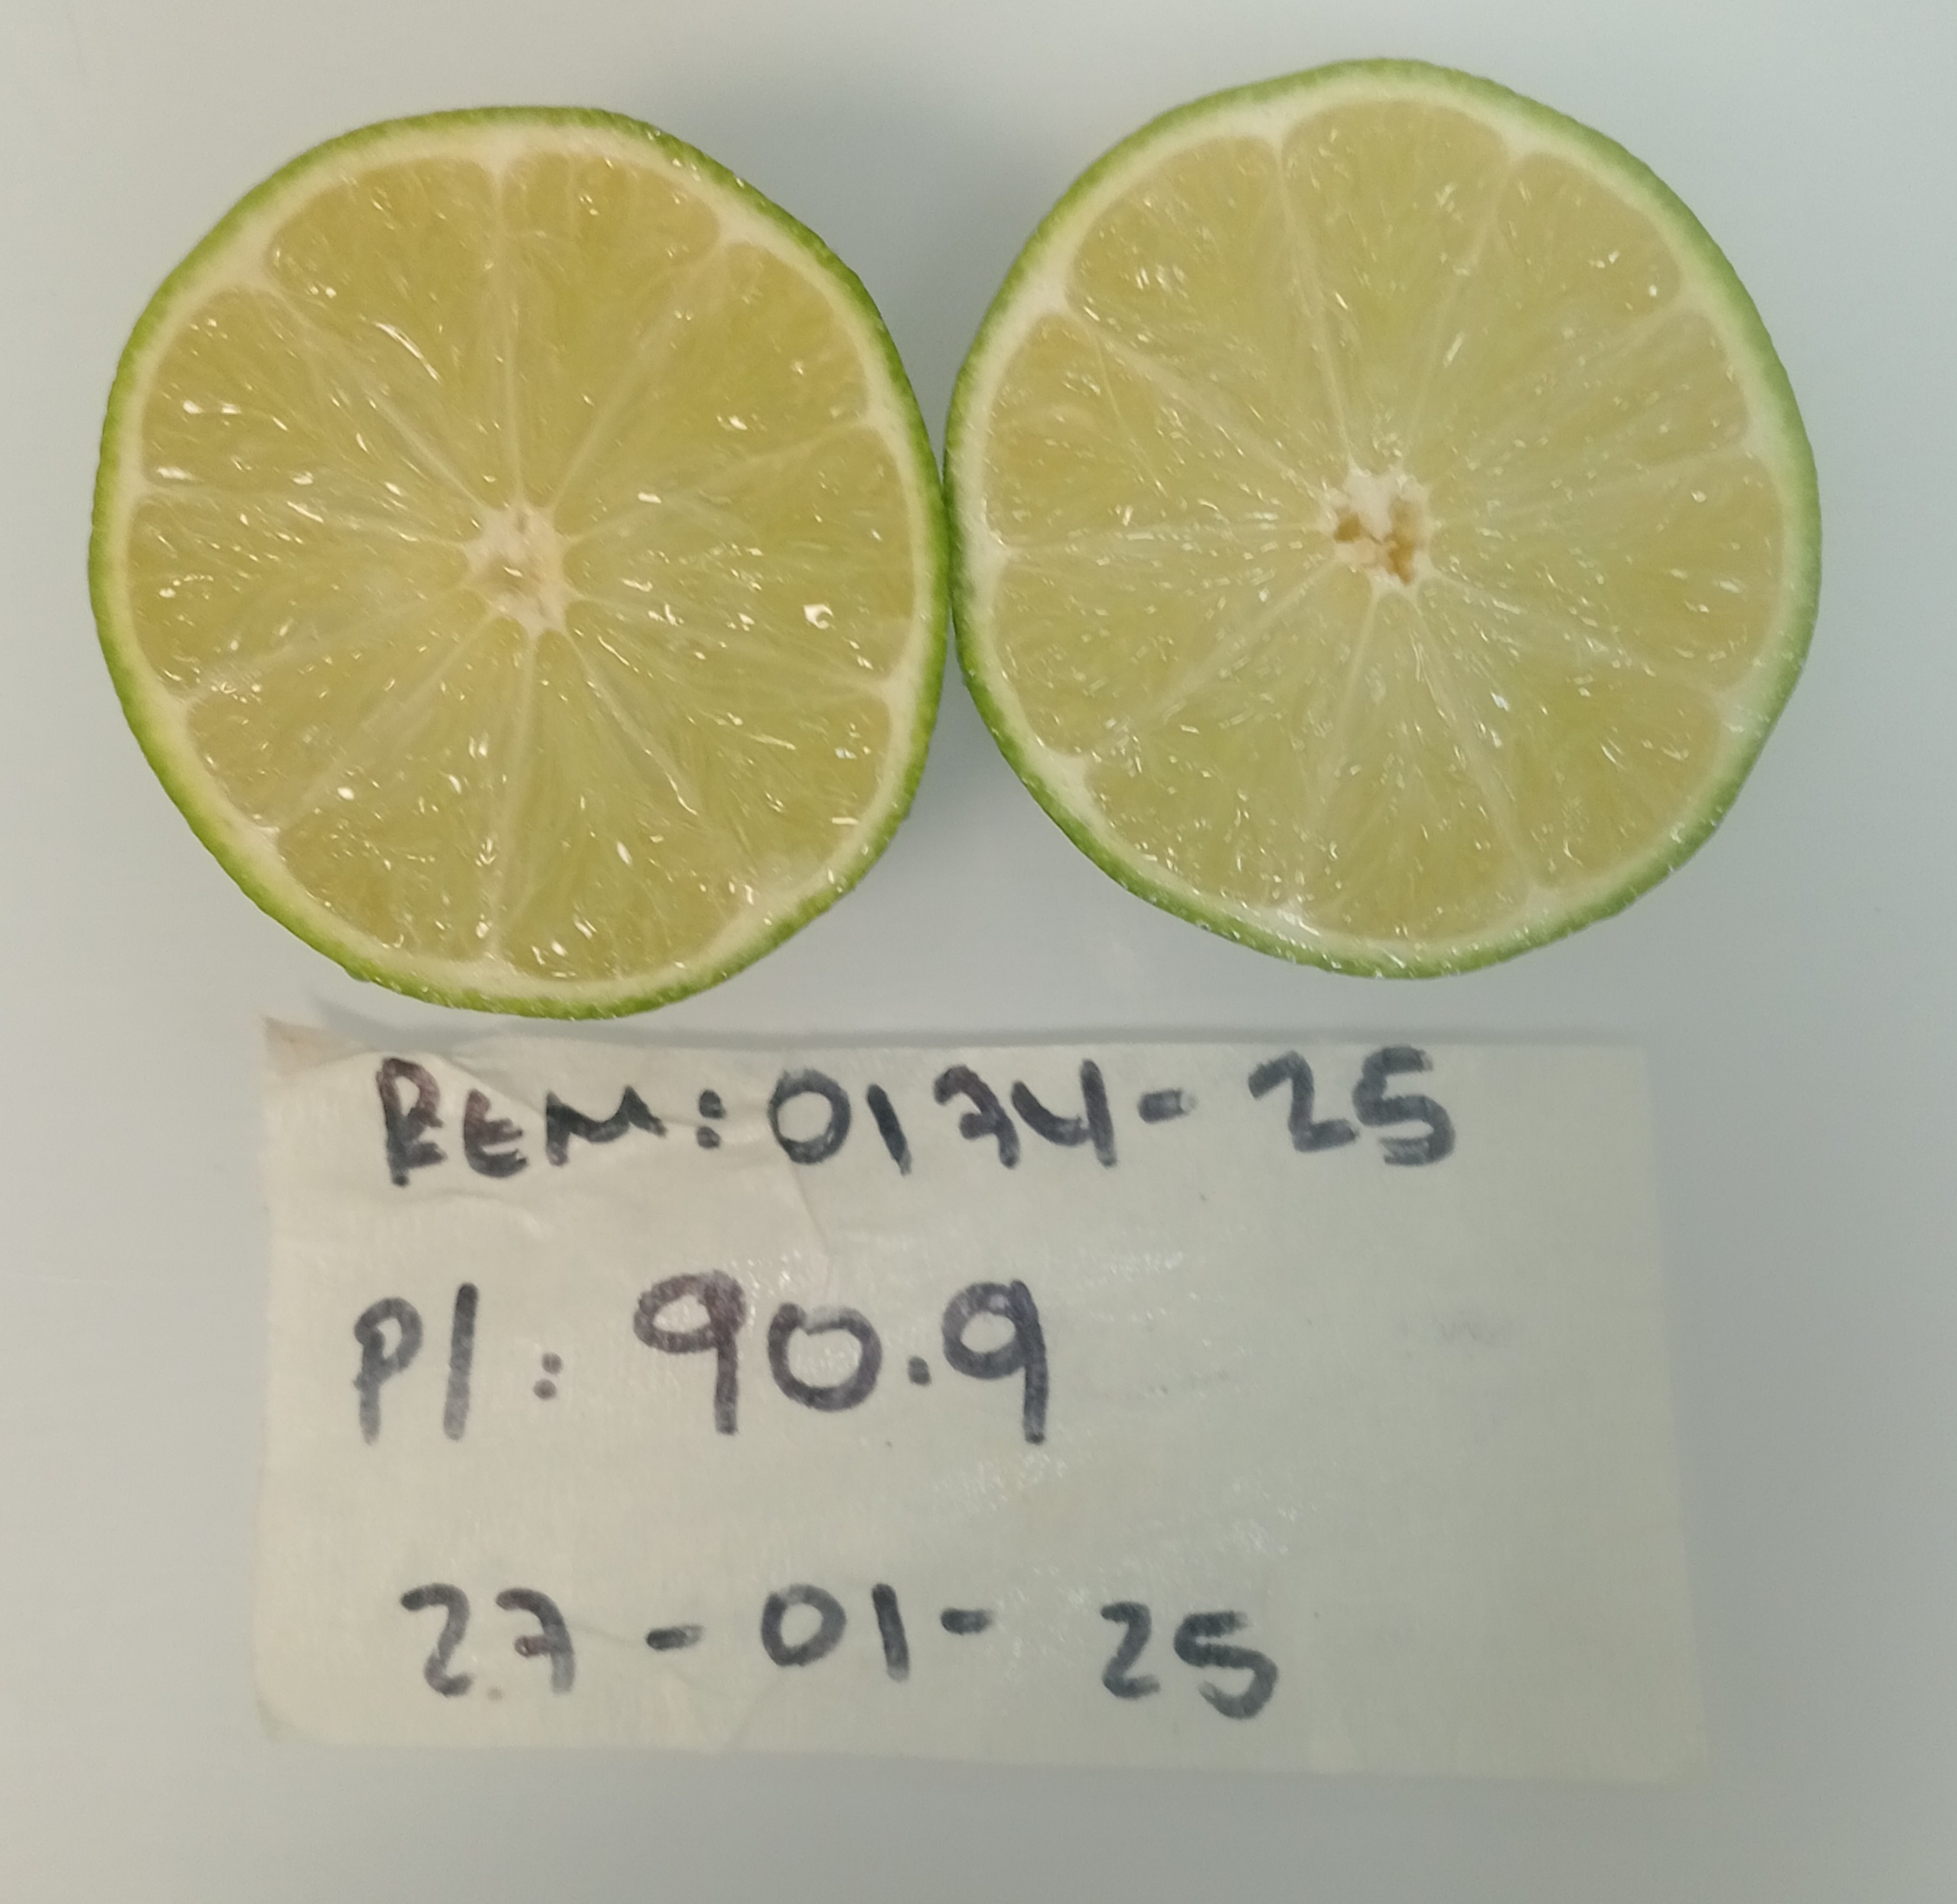 REM: 0174- 25
P/: 90.9
27-01-25